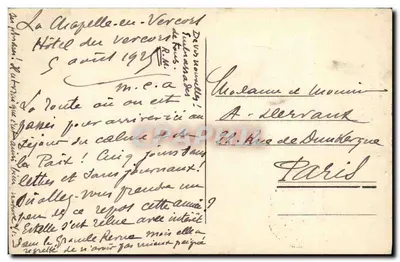 La Chapelle-en-Vercors
Hôtel du Vercors
5 août 1925
m.c.a
La route où on est
passés pour arriver ici au
séjour du calme et de
la Paix! Cinq jours sans
lettres et sans journaux!
Où allez-vous prendre un
peu de ce repos cette année?
Estelle s'est relue avec intérêt
dans la Grande Revue mais elle a
regretté de n'avoir pas mieux peigné
De vos nouvelles!
Madame et Monsieur
A. Dervaux
Rue de Dunkerque
Paris